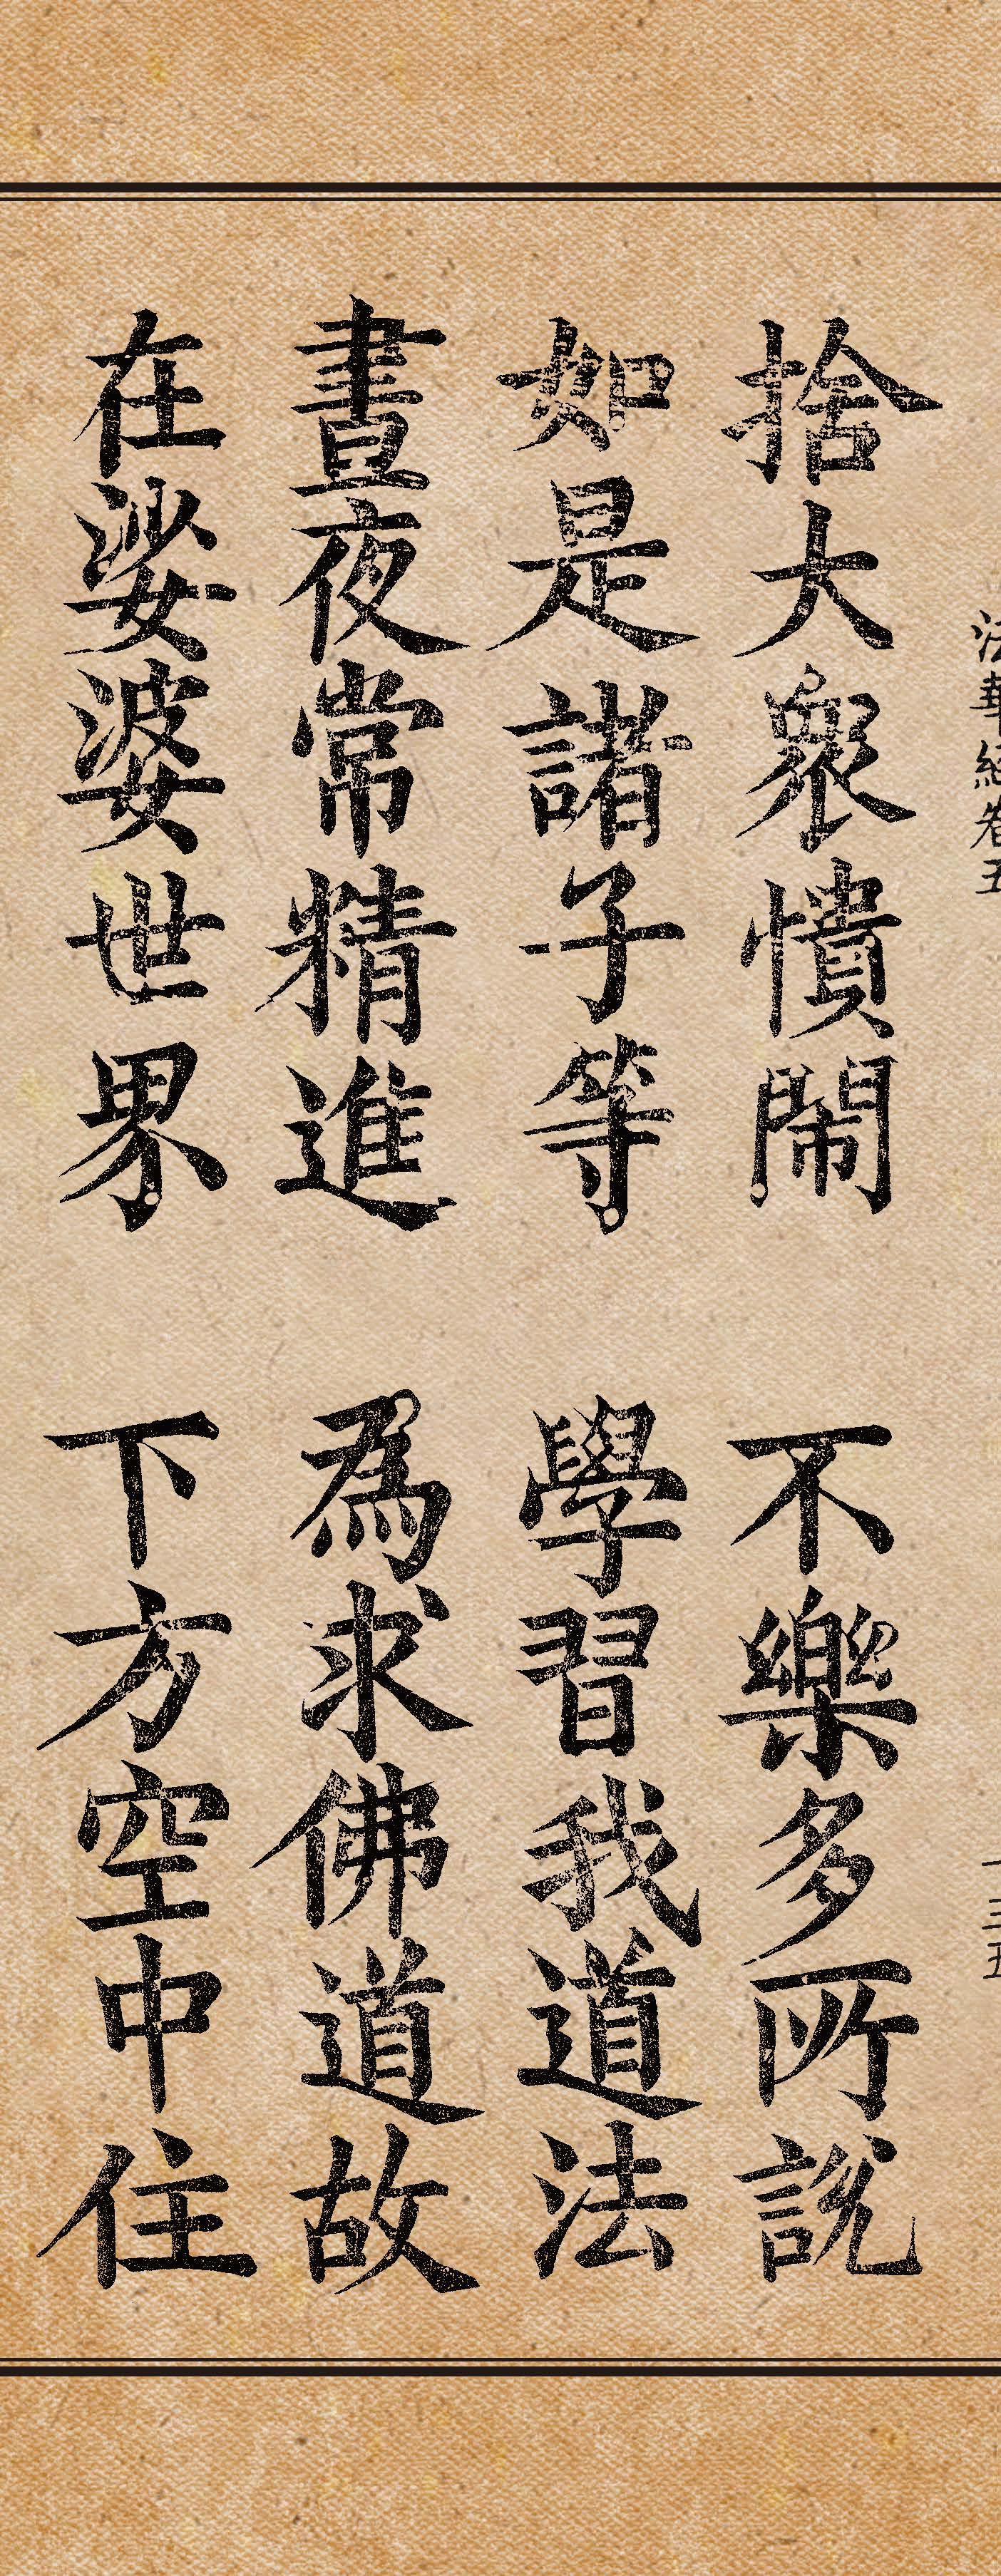 法華經卷五
一三五
捨大衆憒閙 不樂多所說
如是諸子等 學習我道法
晝夜常精進 爲求佛道故
在娑婆世界 下方空中住